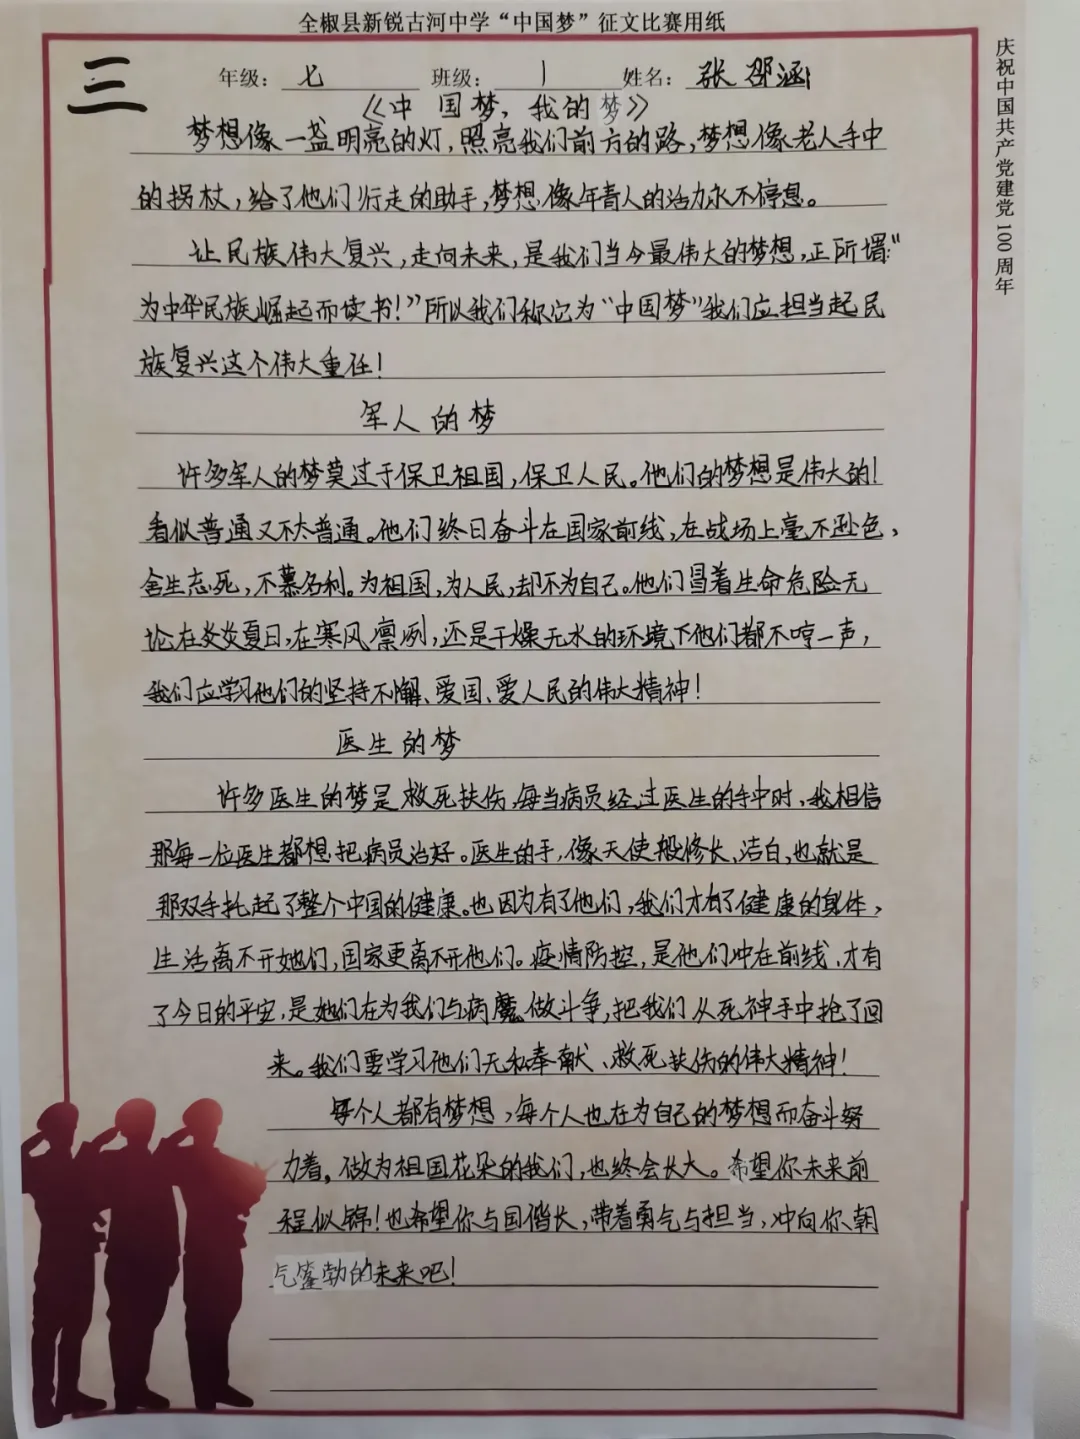 全椒县新锐古河中学“中国梦”征文比赛用纸
三
年级：七 班级：1 姓名：张邵涵
《中国梦，我的梦》
梦想像一盏明亮的灯，照亮我们前方的路，梦想像老人手中
的拐杖，给了他们行走的助手，梦想像年青人的活力永不停息。
让民族伟大复兴，走向未来，是我们当今最伟大的梦想，正所谓：“
为中华民族崛起而读书！”所以我们称它为“中国梦”我们应担当起民
族复兴这个伟大重任！
军人的梦
许多军人的梦莫过于保卫祖国，保卫人民。他们的梦想是伟大的！
看似普通又不太普通。他们终日奋斗在国家前线，在战场上毫不逊色，
舍生忘死，不慕名利。为祖国，为人民，却不为自己。他们冒着生命危险无
论在炎炎夏日，在寒风凛冽，还是干燥无水的环境下他们都不哼一声，
我们应学习他们的坚持不懈、爱国、爱人民的伟大精神！
医生的梦
许多医生的梦是救死扶伤，每当病员经过医生的手中时，我相信
那每一位医生都想把病员治好。医生的手，像天使般修长，洁白，也就是
那双手托起了整个中国的健康。也因为有了他们，我们才有了健康的身体，
生活离不开她们，国家更离不开他们。疫情防控，是他们冲在前线，才有
了今日的平安，是她们在为我们与病魔做斗争，把我们从死神手中抢了回
来。我们要学习他们无私奉献、救死扶伤的伟大精神！
每个人都有梦想，每个人也在为自己的梦想而奋斗努
力着。做为祖国花朵的我们，也终会长大。希望你未来前
程似锦！也希望你与国偕长，带着勇气与担当，冲向你朝
气蓬勃的未来吧！
庆祝中国共产党建党100周年